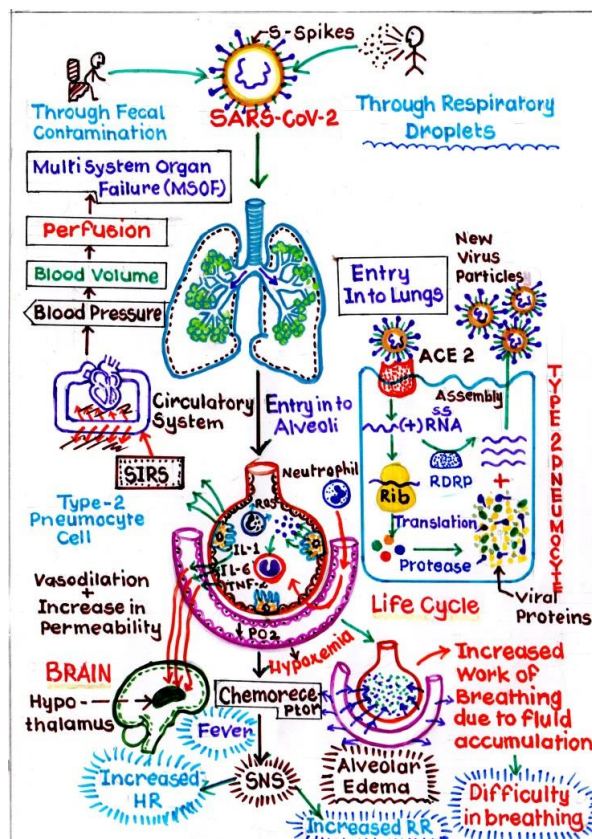 S-Spikes
SARS-CoV-2
Through Fecal
Contamination
Through Respiratory
Droplets
Multi System Organ
Failure (MSOF)
Perfusion
Blood Volume
Blood Pressure
Circulatory
System
SIRS
Entry
Into Lungs
New
Virus
Particles
ACE 2
Assembly
ss
(+)RNA
RDRP
Rib
Translation
Protease
+
Viral
Proteins
TYPE 2 PNEUMOCYTE
Life Cycle
Entry in to
Alveoli
Neutrophil
Type-2
Pneumocyte
Cell
ROS
IL-1
IL-6
TNF-2
Vasodilation
+
Increase in
Permeability
↓PO2
Hypoxemia
BRAIN
Hypo
thalamus
Fever
Chemorece
ptor
Increased
HR
SNS
Increased RR
Alveolar
Edema
Increased
Work of
Breathing
due to fluid
accumulation
Difficulty
in breathing